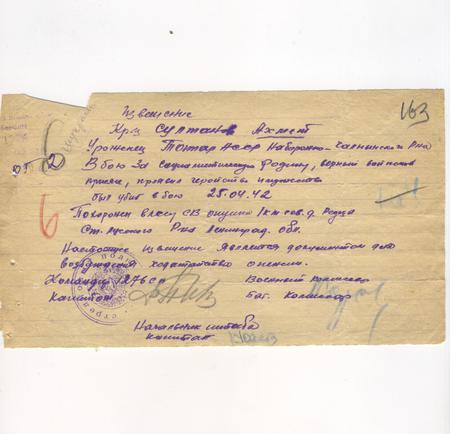 163
Извещение
Крц Султанов Ахмет
Уроженец Татар АССР Набережно-Челнинского р-на
В бою за социалистическую Родину, верный воинской
присяге, проявив геройство и мужество
был убит в бою 25.04.42
Похоронен в лесу св опушка 1 км сев. д. Редца
Ст. Русского р-на Ленинград. обл.
Настоящее извещение является документом для
возбуждения ходатайства о пенсии.
Командир 1276 сп Военный комиссар
Капитан бат. комиссар
Начальник штаба
капитан
6